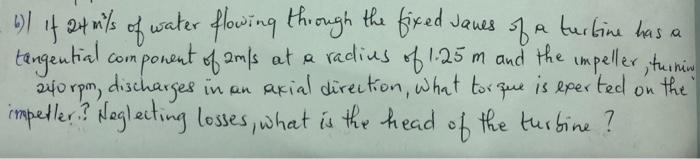 b) If 24 m³/s of water flowing through the fixed vanes of a turbine has a
tangential component of 2m/s at a radius of 1.25 m and the impeller, turning
240 rpm, discharges in an axial direction, what torque is exerted on the
impeller? Neglecting losses, what is the head of the turbine?